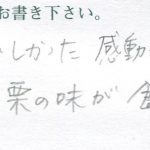 お書き下さい。
しかった 感動
栗の味が